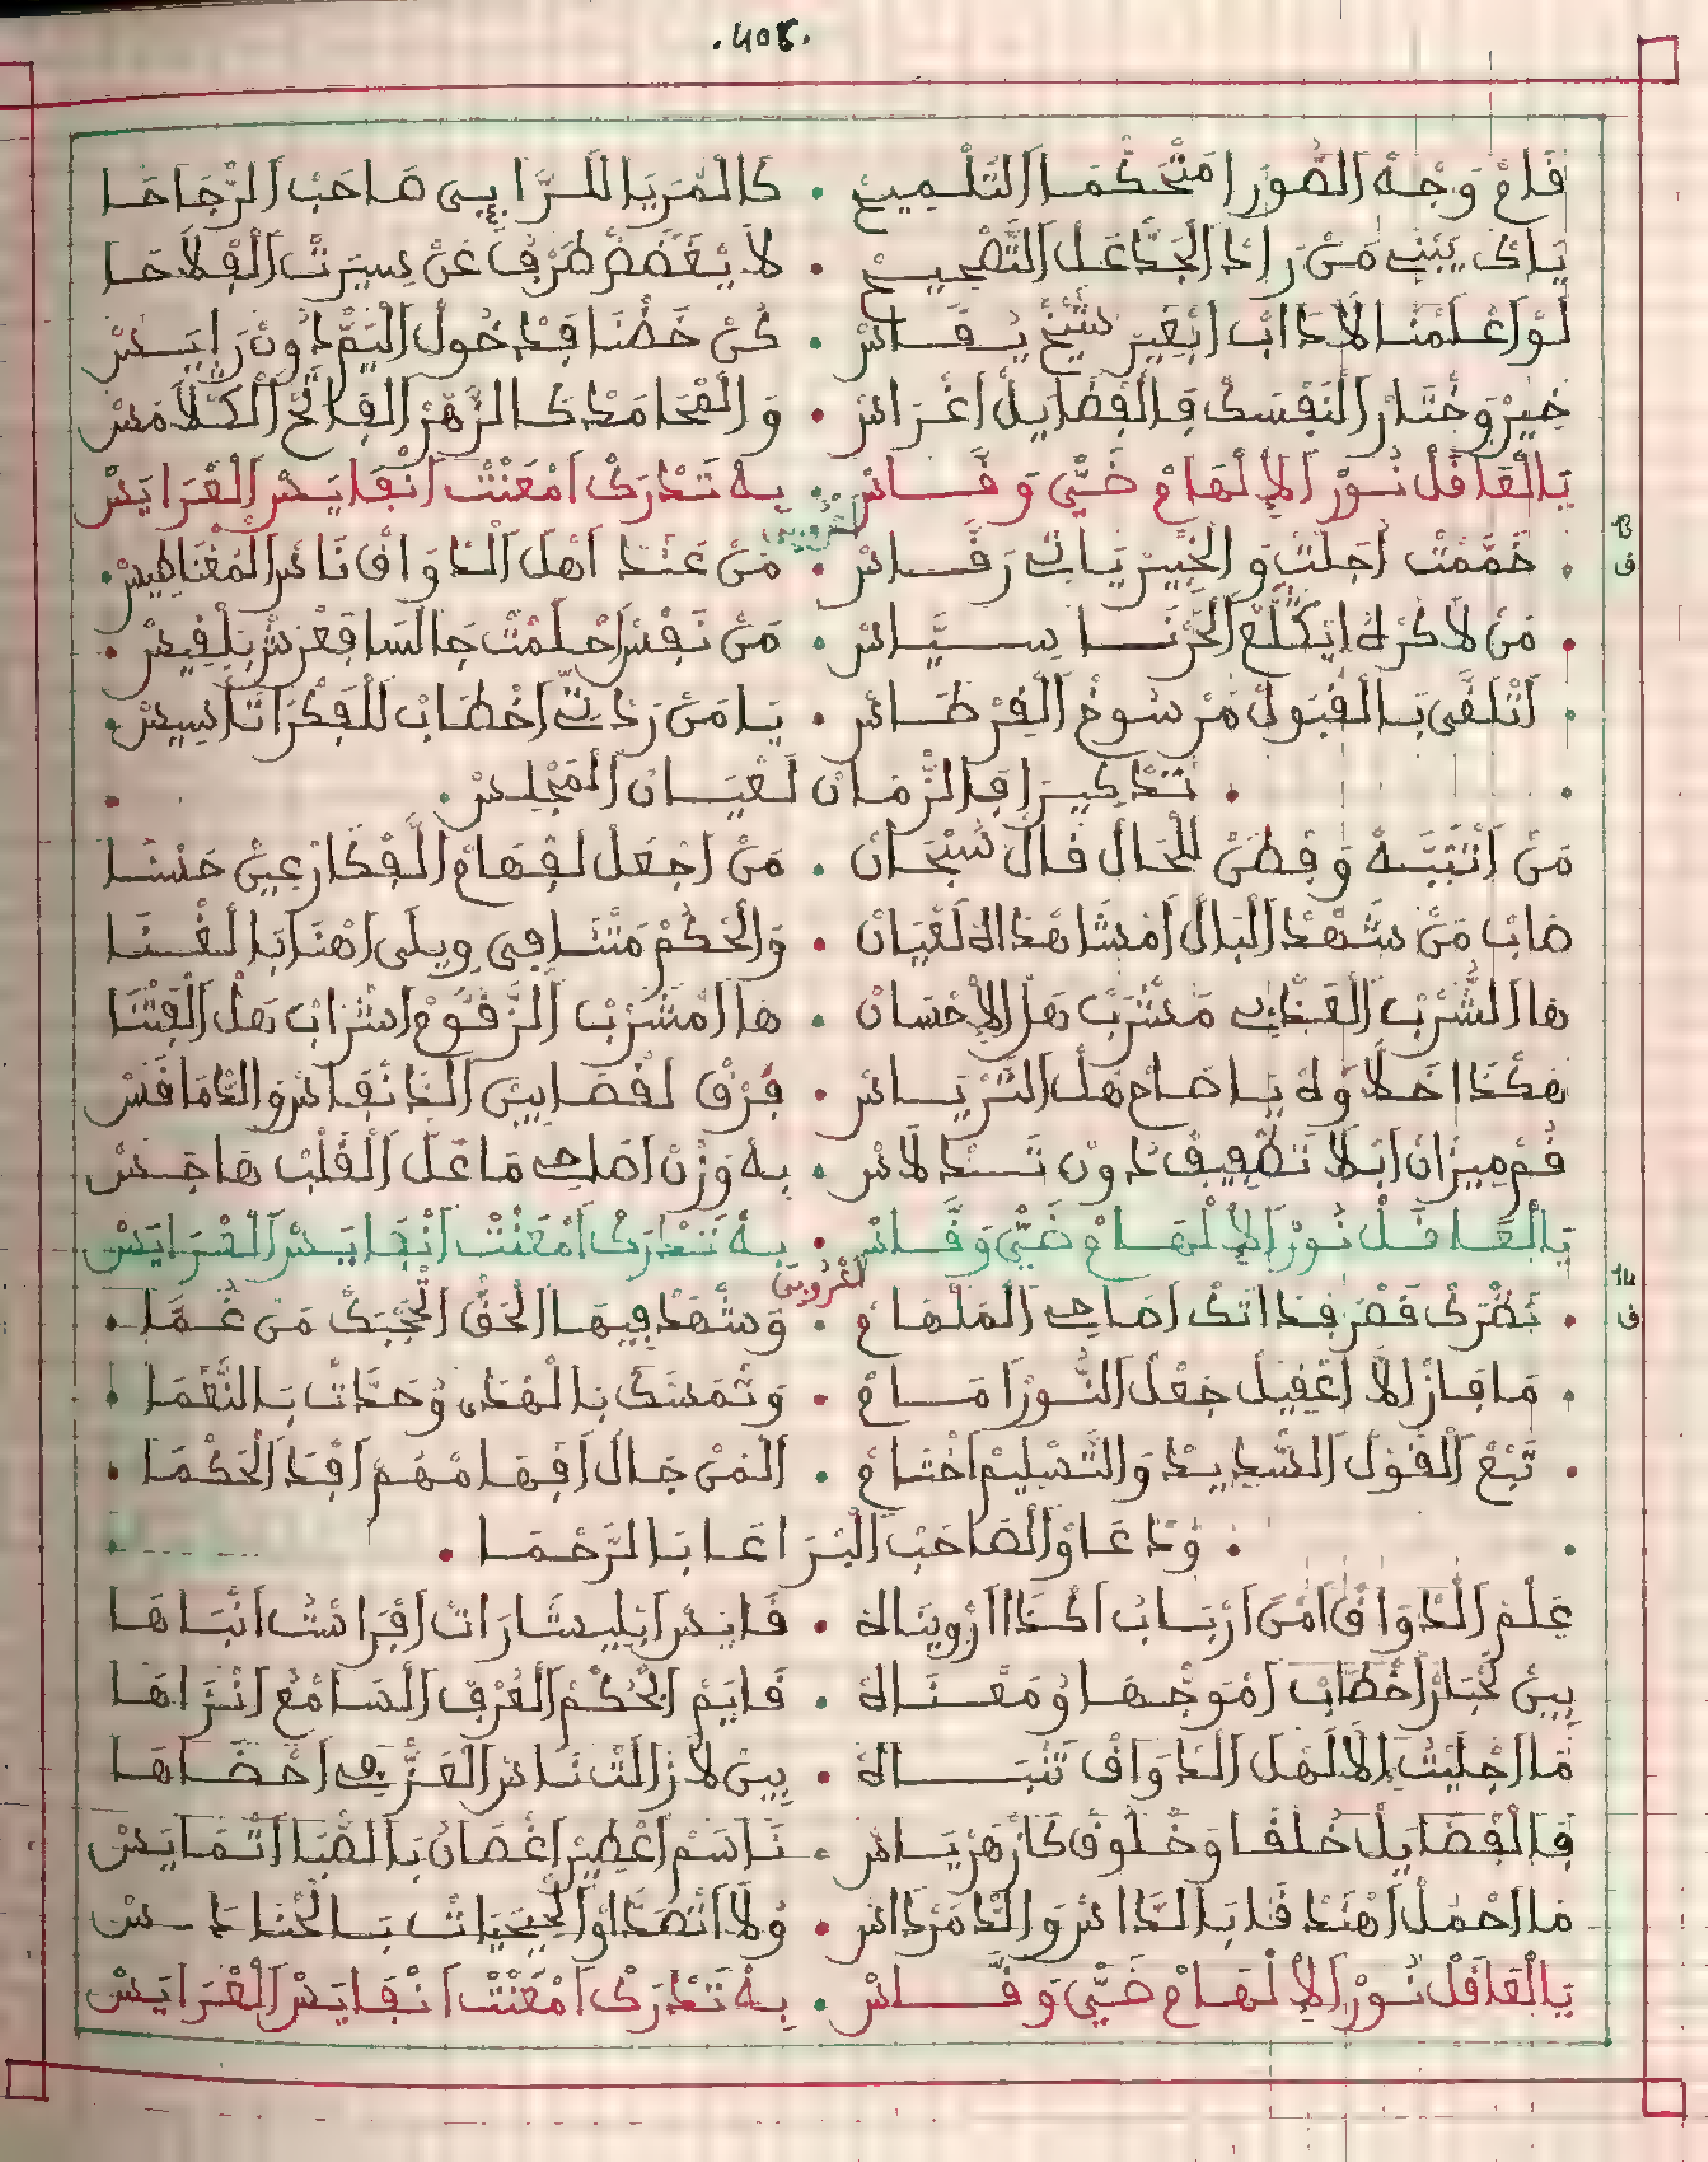 .405.
فَاحْ وَجْهْ الصُّورْ امْتْحَكْمَا التَّلْمِيحْ • كَالْمَرْيَا لَلرَّايِي صَاحَبْ الرّْجَاحَا
يَاكْ يَبْنِي مَنْ رَادْ الْجَدّْ عَلْ التَّصْحِيحْ • لاَ يْغَضَّضْ طَرْفْ عَنْ سِيرْتْ الْفْلاَحَا
لَوْ اعْلَمْنَا لاَ دَابْ ابْغِيرْ شِيخْ يُقَاسْ • كُنْ خَضْنَا فَدْخُولْ الْيَمّْ دُونْ رَايَسْ
خِيرْ وَخْتَارْ النَفْسَكْ فَالْفْضَايَلْ اغْرَاسْ • وَالْمْحَامَدْ كَالزّْهَرْ الْفَايَحْ الْكْلاَمَسْ
يَالْغَافَلْ نُورْ الإِلْهَامْ ضَيّْ وَقَّاسْ • بِهْ تَدْرَكْ امْعَنْتْ انْفَايَسْ الْعْرَايَسْ
13
اعْرُوبِي
ف
• خَمَّمْتْ اجَلْتْ وَالْخِيرْ يَاتِي رَفَّاسْ • مَنْ عَنْدْ اهْلْ الدّْوَاقْ نَاسْ الْمْغَنَاطِيسْ •
• مَنْ لاَ كَرْهْ ايْكَلَّعْ الْحَرْفَا سِيَّاسْ • مَنْ نَفْسْ احْلَمْتْ جَالْسَا فَعْرْشْ بَلْقِيسْ •
• اتْلَقَّى بَالْقْبُولْ مَرْسُوخْ الْقِرْطَاسْ • يَا مَنْ رَدْتِي اخْطَابْ لَلْفَكْرَا تَاسِيسْ •
• تَدْكِيرَا فَالزّْمَانْ لَعْيَانْ الْمَجْلِسْ •
مَنْ انْتَبَهْ وَفْطَنْ لَلْحَالْ قَالْ سُبْحَانْ • مَنْ اجْعَلْ لَفْهَامْ الَفْكَارْ عِينْ حَسْنَا
صَابْ مَنْ شَهْدْ الْبَالْ امْشَاهْدَا لَعْيَانْ • وَالْحُكْمْ مَتْنَافِي وِيلَى اهْنَا بَالْغْنَا
هَا الشُّرْبْ الْعَدْبِي مَشْرَبْ هَلْ الإِحْسَانْ • هَا امْشَرْبْ الزَّقُّومْ اشْرَابْ هَلْ الْفِتْنَا
هَكْدَا اخْلاَوَهْ يَا صَاحْ هَلْ التَّرْيَاسْ • فَرْقْ لَفْصَا بِينْ الدَّنْفَاسْ وَالدّْمَاقَسْ
قُمْ مِيزَانْ ابْلاَ تَطْفِيفْ دُونْ تَنْدْلاَسْ • بِهْ وَزْنْ اصَاحِي مَا عَلْ الْقَلْبْ هَاجَسْ
يَالْغَافَلْ نُورْ الإِلْهَامْ ضَيّْ وَقَّاسْ • بِهْ تَدْرَكْ امْعَنْتْ انْفَايَسْ الْعْرَايَسْ
14
اعْرُوبِي
ف
• نَظْرَكْ قَصْرْ فَدَاتَكْ اصَاحِي الْمَلْهَامْ • وَشْهَدْ فِيهَا الْحَقّْ الْحَجْبَكْ مَنْ غُمَّا •
• مَا فَازْ الاَّ اعْقِيلْ جَعْلْ النُّورْ امَامْ • وَتْمَسَكْ بَالْهُدَى وُحَدَّتْ بَالنَّعْمَا •
• تَبْعْ الْقَوْلْ السَّدِيدْ وَالتَّسْلِيمْ اخْتَامْ • الْمَنْ جَالْ افْهَامْهُمْ افْدْ الْحَكْمَا •
• وُدْعَاوْ الصَاحَبْ الْبْرَاعَا بَالرَّحْمَا •
عَلْمْ الدّْوَاقْ امْنْ ارْبَابُ اكْدَا ارْوِينَاهْ • فَايْسْ ابْلِيشَارَاتْ افْرَاسْتْ انْبَاهَا
بِينْ لَخْبَارْ اخْطَابْ امْوَجْهَا وُمَعْنَاهْ • فَايَمْ الْحُكْمْ الْعُرْفْ السَّامْعْ انْزَاهَا
مَا اجْلِيتْ الاَّ لَهَلْ الدّْوَاقْ تَنْبَاهْ • بِينْ لاَ زَالْتْ نَاسْ الْعَزّْ فِي احْضَاهَا
فَالْفْضَايَلْ خُلْقَا وَخْلُوقْ كَازْهَرْ يَاسْ • نَاسَمْ اعْطِيرْ اغْصَانُ بَالصّْبَا اتْمَايَسْ
مَا احْمَلْ اهْنَدْ قَابَا الدَّاسْ وَالدَّمَرْدَاسْ • وُلاَ اتْصَدَّاوْ الْجِيحَيَاتْ بَالْحْنَادَسْ
يَالْغَافَلْ نُورْ الإِلْهَامْ ضَيّْ وَقَّاسْ • بِهْ تَدْرَكْ امْعَنْتْ انْفَايَسْ الْعْرَايَسْ